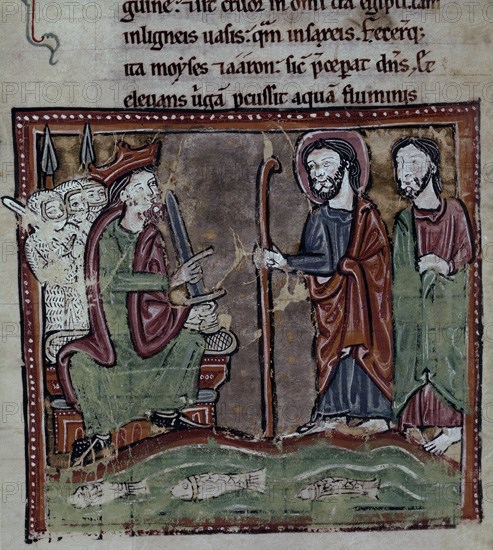 guine: & sit cruor in omi tra egipti: tam
in ligneis uasis: qm in saxeis. Fecerq;
ita moyses & aaron: sic p̄ceperat dn̄s. Et
eleuans uirgā pcussit aquā fluminis